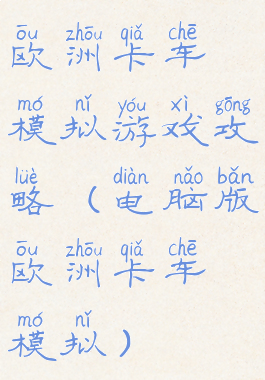 ōu zhōu qiǎ chē
欧洲卡车
mó nǐ yóu xì gōng
模拟游戏攻
lüè diàn nǎo bǎn
略（电脑版
ōu zhōu qiǎ chē
欧洲卡车
mó nǐ
模拟）